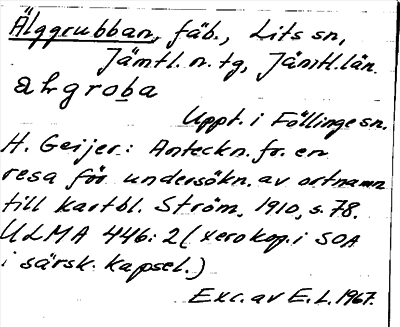 Älggrubban, fäb., Lits sn,
Jämtl. n. tg, Jämtl. län.
aLgroba
Uppt. i Föllinge sn.
H. Geijer: Anteckn. fr. en
resa för undersökn. av ortnamn
till kartbl. Ström, 1910, s. 78.
ULMA 446:2 (xerokop. i SOA
i särsk. kapsel.)
Exc. av E. L. 1967.